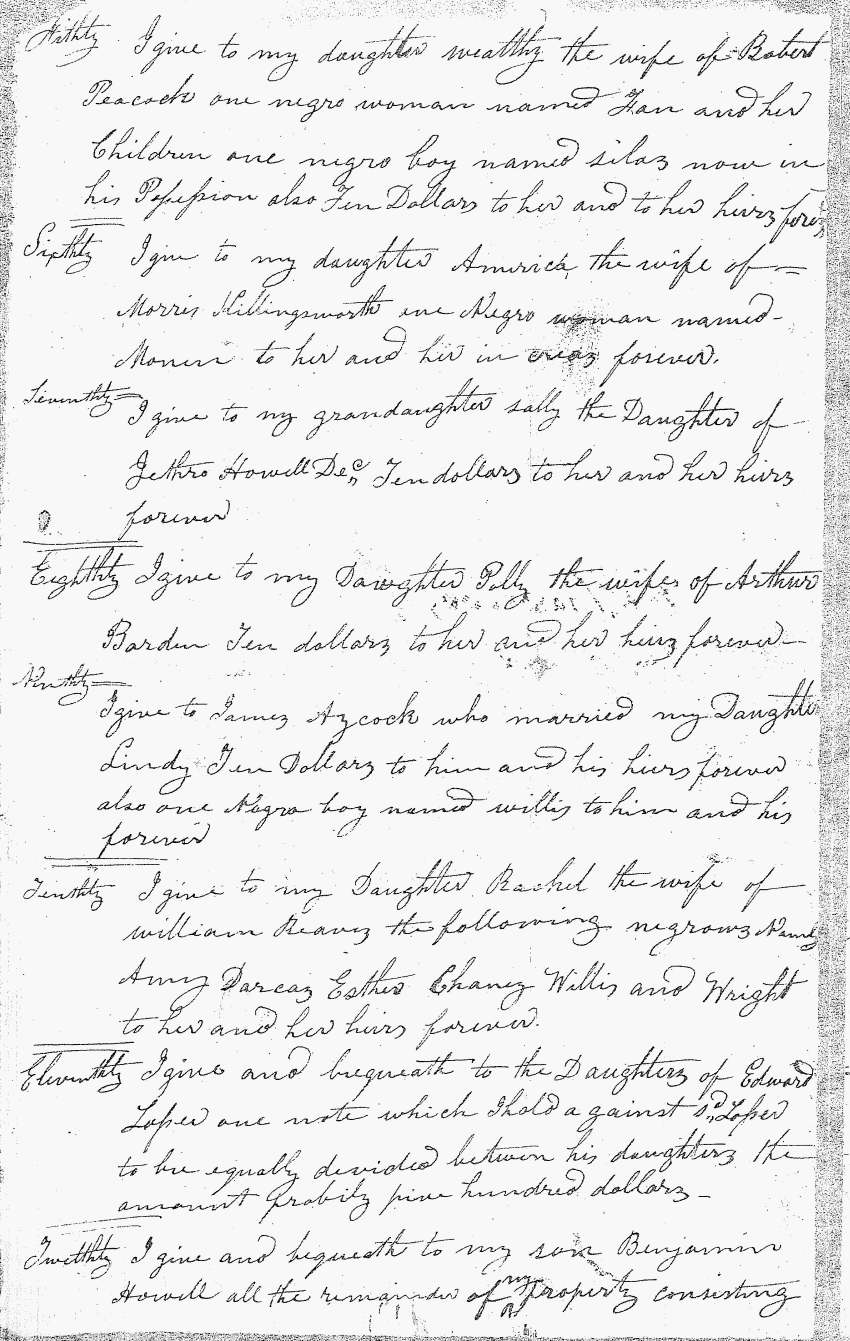 Fifthly I give to my daughter wealthy the wife of Robert
Peacock one negro woman named Fan and her
Children one negro boy named silas now in
his Possession also Ten Dollars to her and to her heirs forev
Sixthly I give to my daughter America, the wife of
Morris Killingsworth one Negro woman named
Monen to her and her in creas forever.
Seventhly I give to my grandaughter sally the Daughter of
Jethro Howell Dec Ten dollars to her and her heirs
forever
Eighthly I give to my Dawghter Polly the wife of Arthur
Barden Ten dollars to her and her heirs forever
Ninthly I give to James Aycock who married my Daughter
Lindy Ten Dollars to him and his heirs forever
also one Negro boy named willis to him and his
forever
Tenthly I give to my Daughter Rachel the wife of
william Reaves the following negrows Namly
Amy Darcas Esther Chaney Willis and Wright
to her and her heirs forever.
Eleventhly I give and bequeath to the Daughters of Edward
Loper one note which I hold a gainst sd Loper
to be equally devided between his daughters the
amount probily five hundred dollars
Twelthly I give and bequeath to my son Benjamin
Howell all the remainder of my property consisting